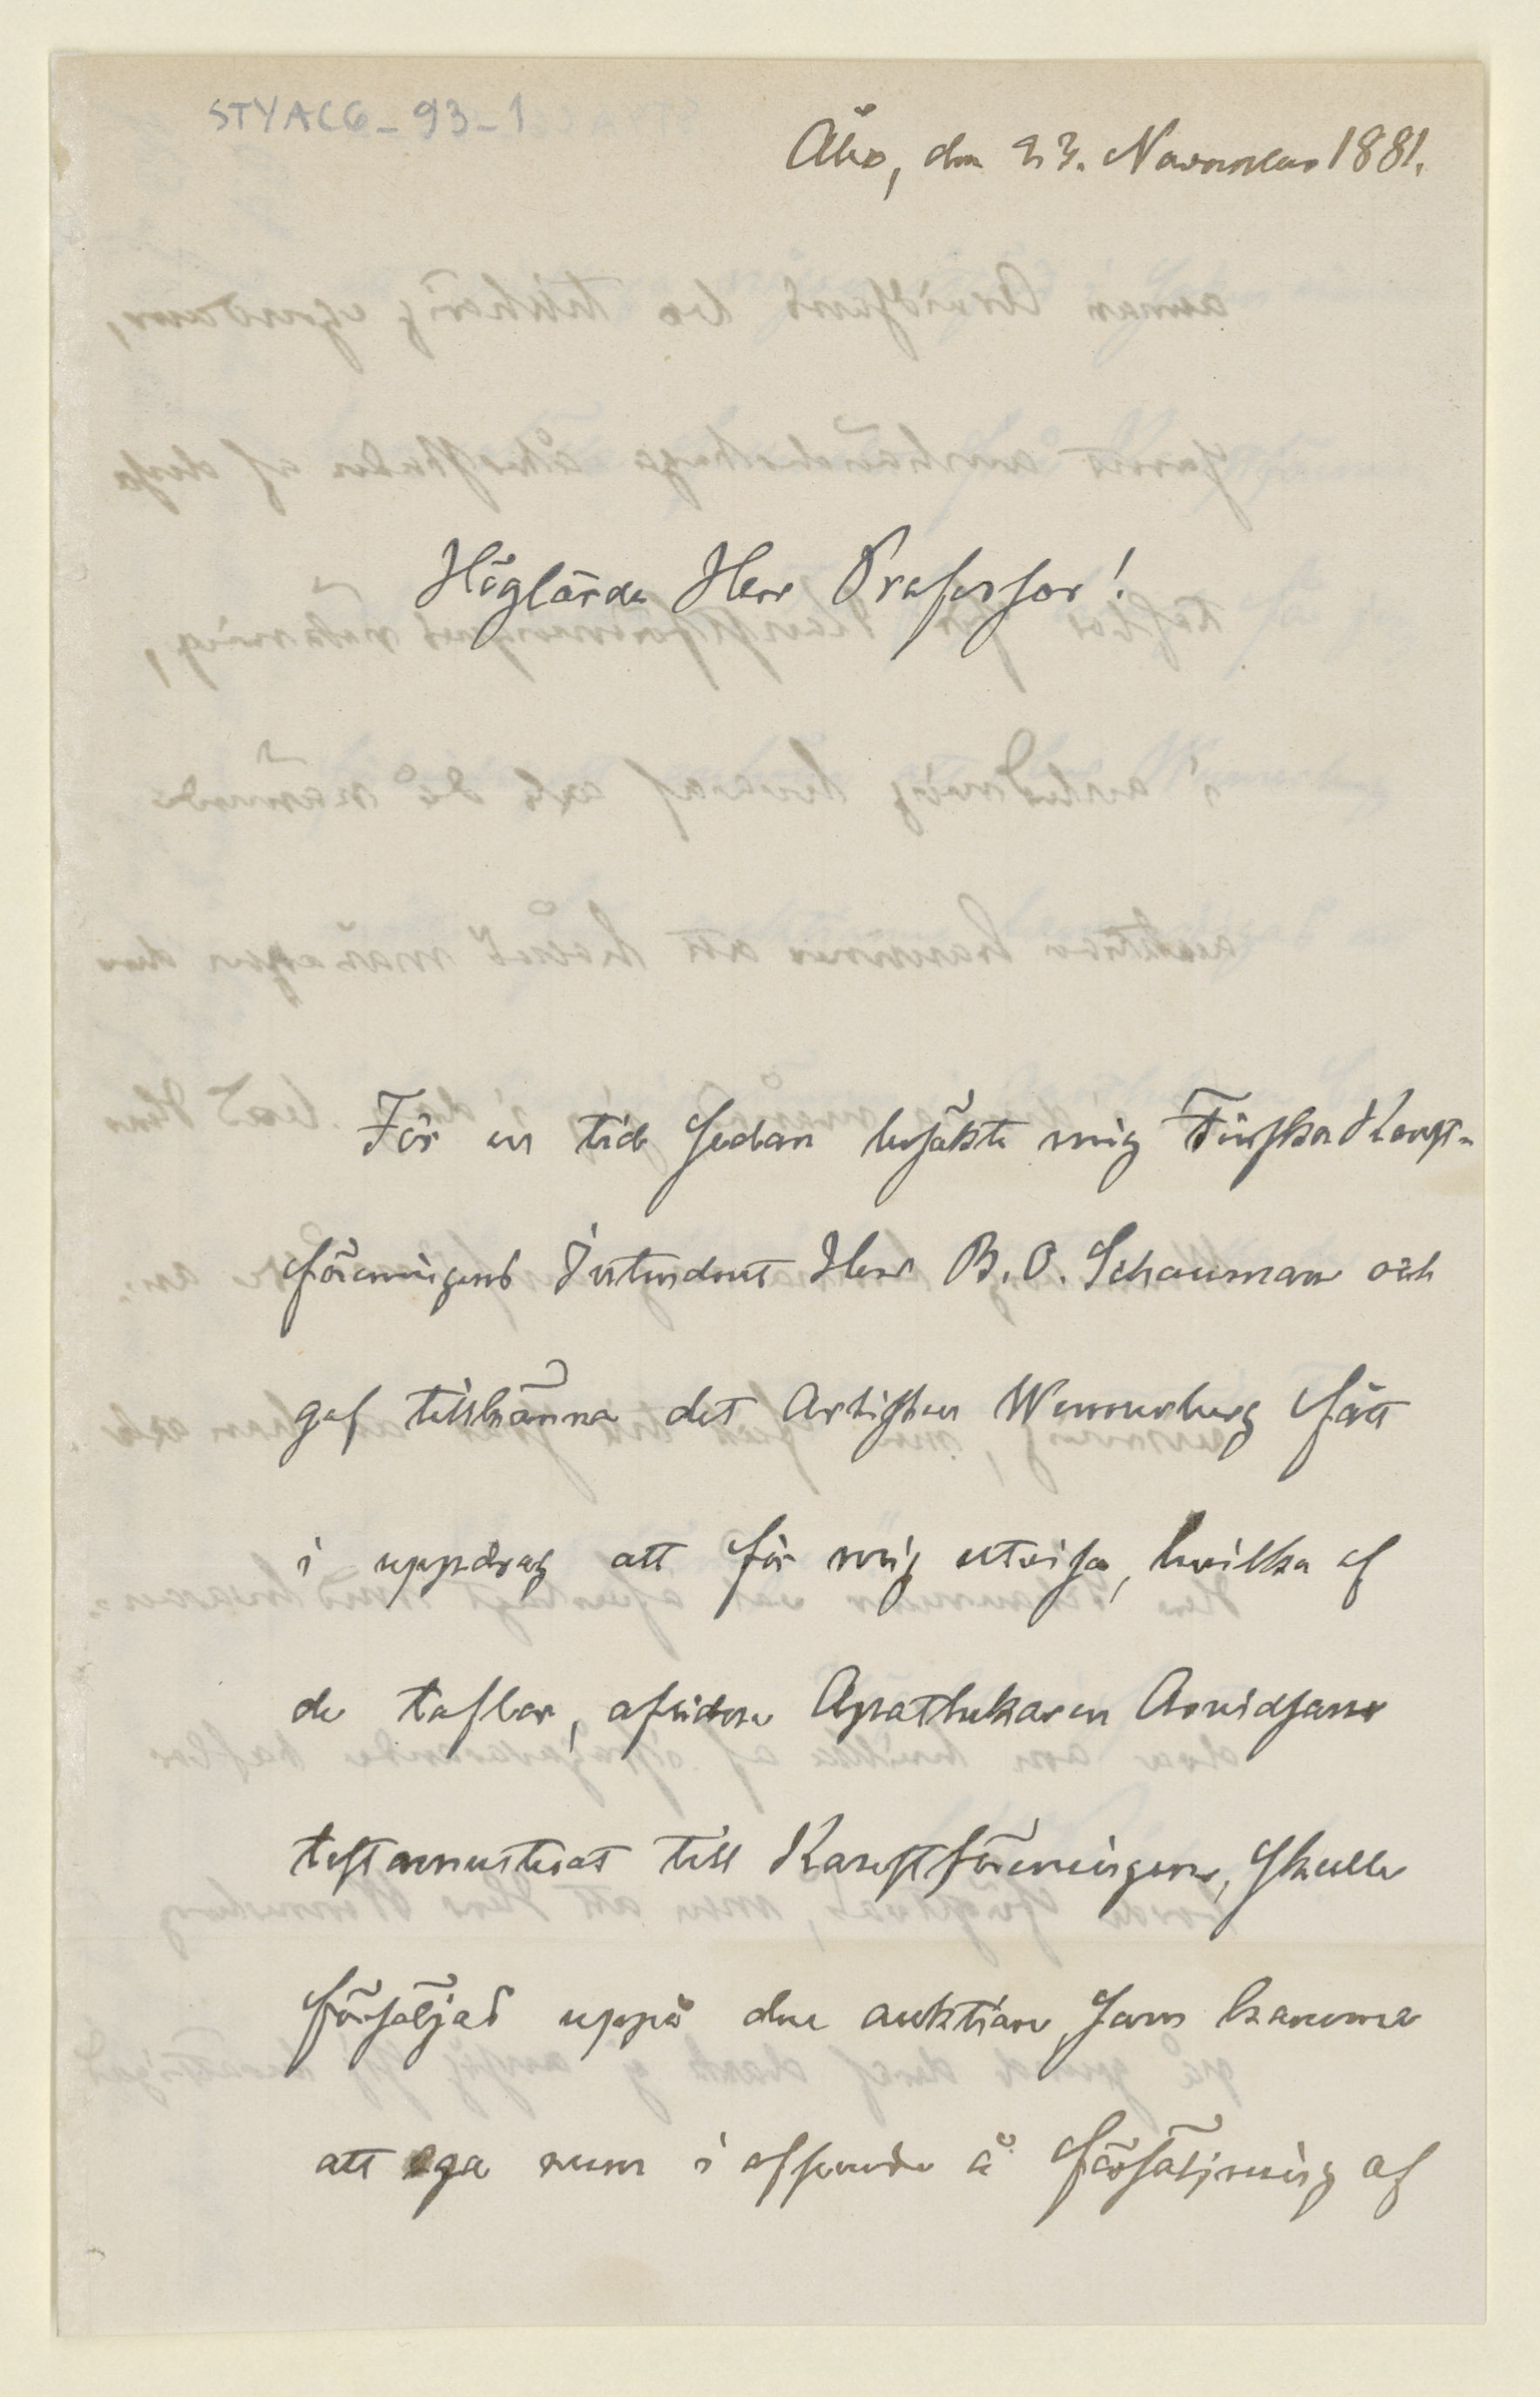 STYAC6_93_1
Åbo, den 23. November 1881.
Höglärde Herr Professor!
För en tid sedan besökte mig Finska Konst-
föreningens Intendent Herr B. O. Schauman och
gaf tillkänna det Artisten Wennerberg fått
i uppdrag att för mig utvisa, hvilka af
de taflor, aflidne Apothekaren Arvidsson
testamenterat till Konstföreningen, skulle
försäljas uppå den auktion, som komme
att ega rum i afseende å försäljning af